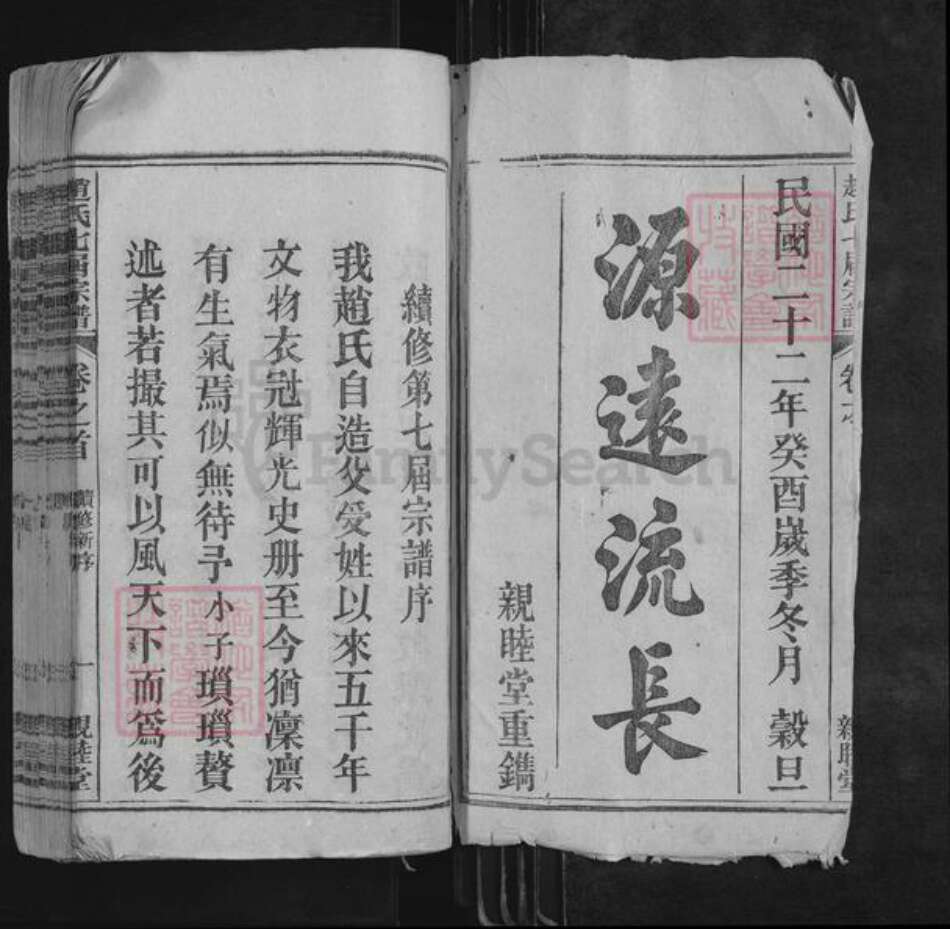 趙氏七屆宗譜
卷之首
親睦堂
民國二十二年癸酉歲季冬月 穀旦
源遠流長
親睦堂重鐫
續修第七屆宗譜序
我趙氏自造父受姓以來五千年
文物衣冠輝光史册至今猶凜凜
有生氣焉似無待予小子瑣瑣贅
述者若撮其可以風天下而爲後
趙氏七屆宗譜
卷之首
續修新序
一
親睦堂
收藏
FamilySearch